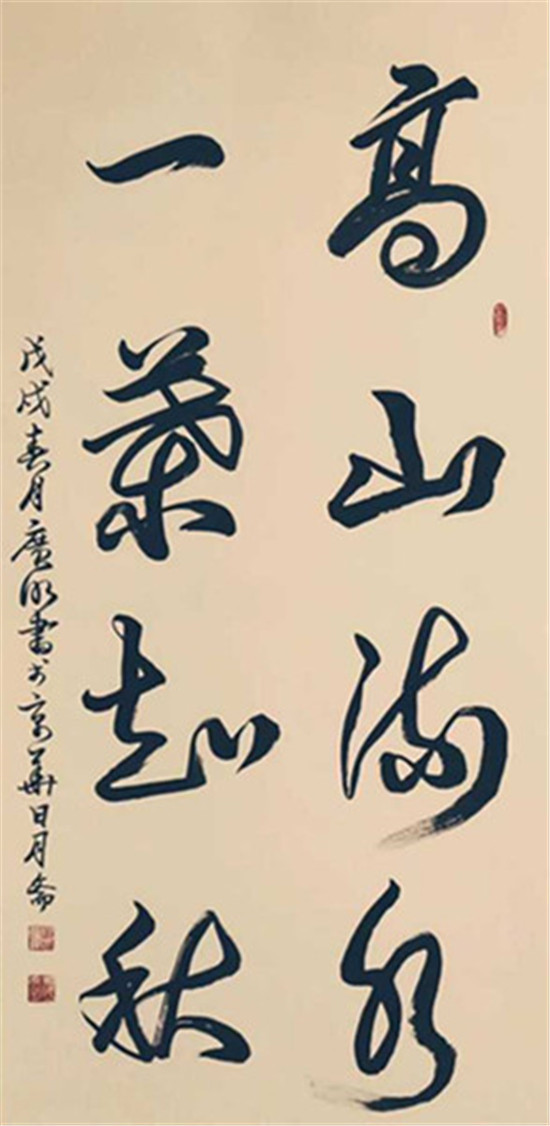 高山流水
一葉知秋
戊戌春月廣書於京華日月齋